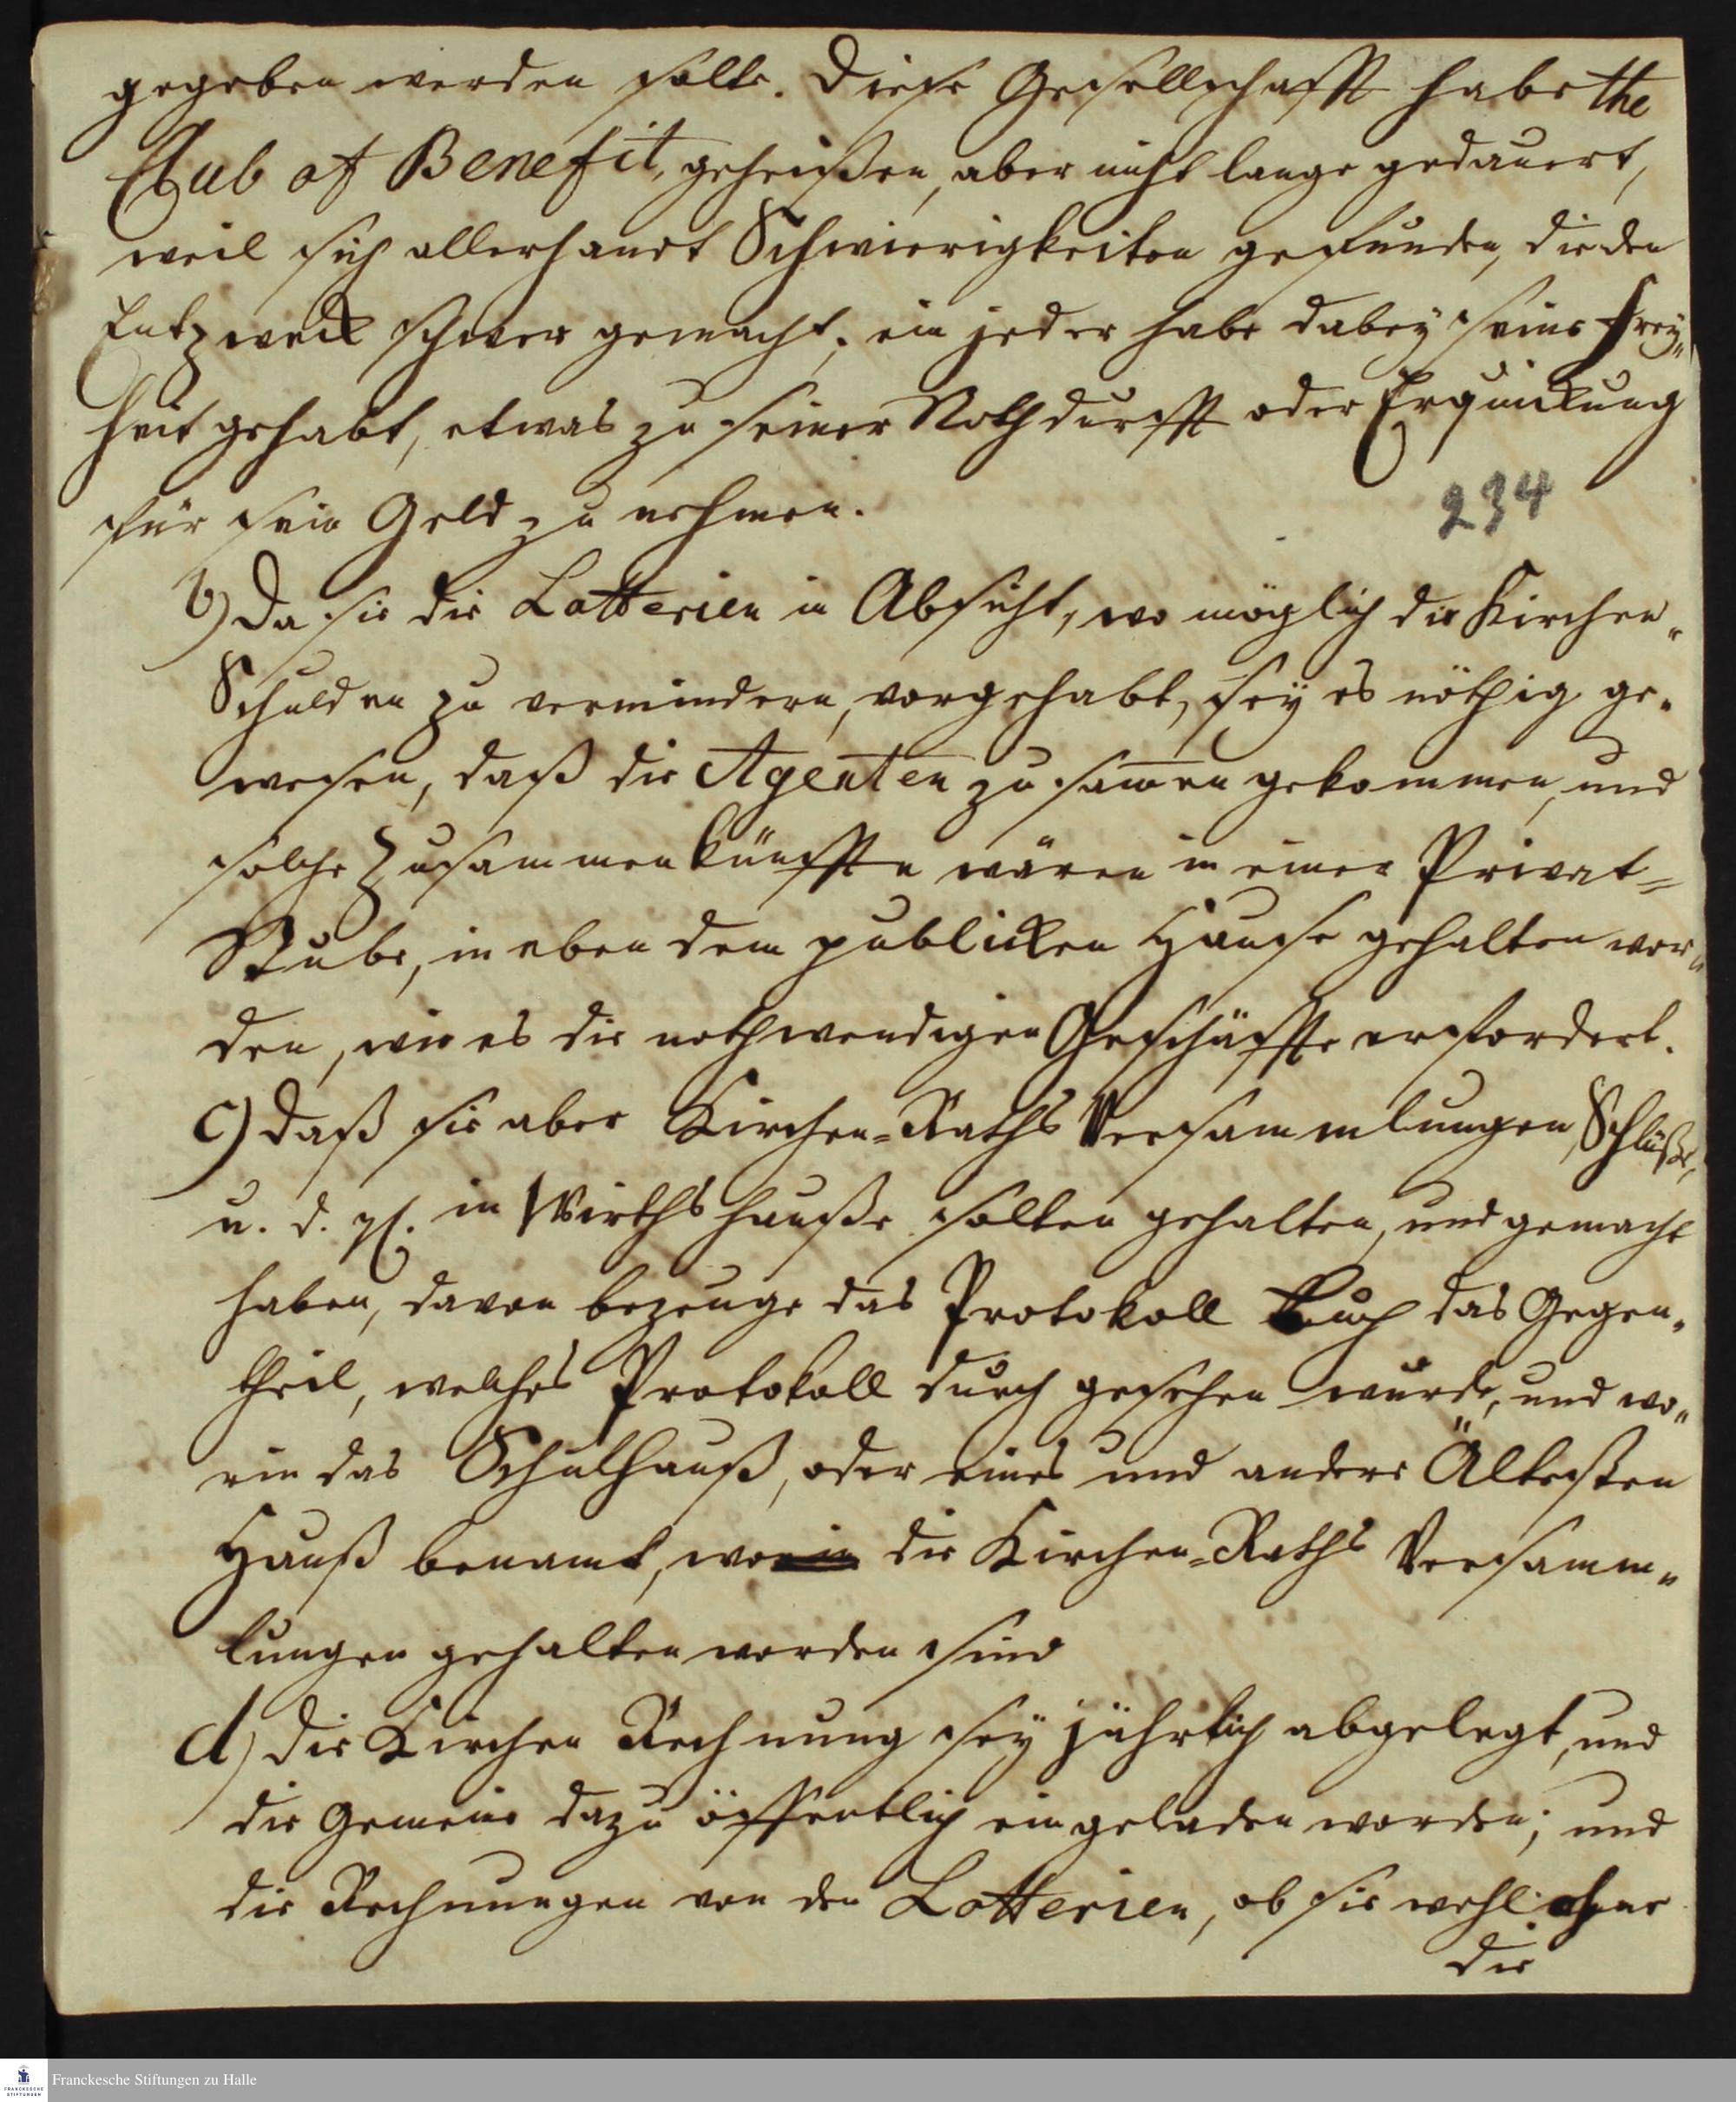 gegeben werden solte. Diese Gesellschafft habe the
Club of Benefit, geheißen, aber nicht lange gedauert,
weil sich allerhandt Schwierigkeiten gefunden, die den
Entzweck schwer gemacht; ein jeder habe dabey seine Frey„
heit gehabt, etwas zu seiner Nothdurfft oder Erquickung
für sein Geld zu nehmen.
234
b) Da sie die Lotterien in Absicht, wo möglich die Kirchen„
Schulden zu vermindern, vorgehabt, sey es nöthig ge„
wesen, daß die Agenten zusammen gekommen, und
solche Zusammenkünfften wären in einer Privat=
Stube, in eben dem publicken Hause gehalten wor„
den, wie es die nothwendigen Geschäffte erfordert.
c) daß sie aber Kirchen=Raths Versammlungen, Schlüße,
u. d. gl. in Wirthshauße solten gehalten, und gemacht
haben, davon bezeuge das Protokoll Buch das Gegen„
theil, welches Protokoll durch gesehen wurde, und wo„
rin das Schulhauß, oder eines und andere Ältesten
Hauß benamt, worin die Kirchen=Raths Versamm„
lungen gehalten worden sind
d) die Kirchen Rechnung sey jährlich abgelegt, und
die Gemeine dazu öffentlich eingeladen worden; und
die Rechnungen von den Lotterien, ob sie wohl ohne
die
Franckesche Stiftungen zu Halle
FRANCKESCHE
STIFTUNGEN